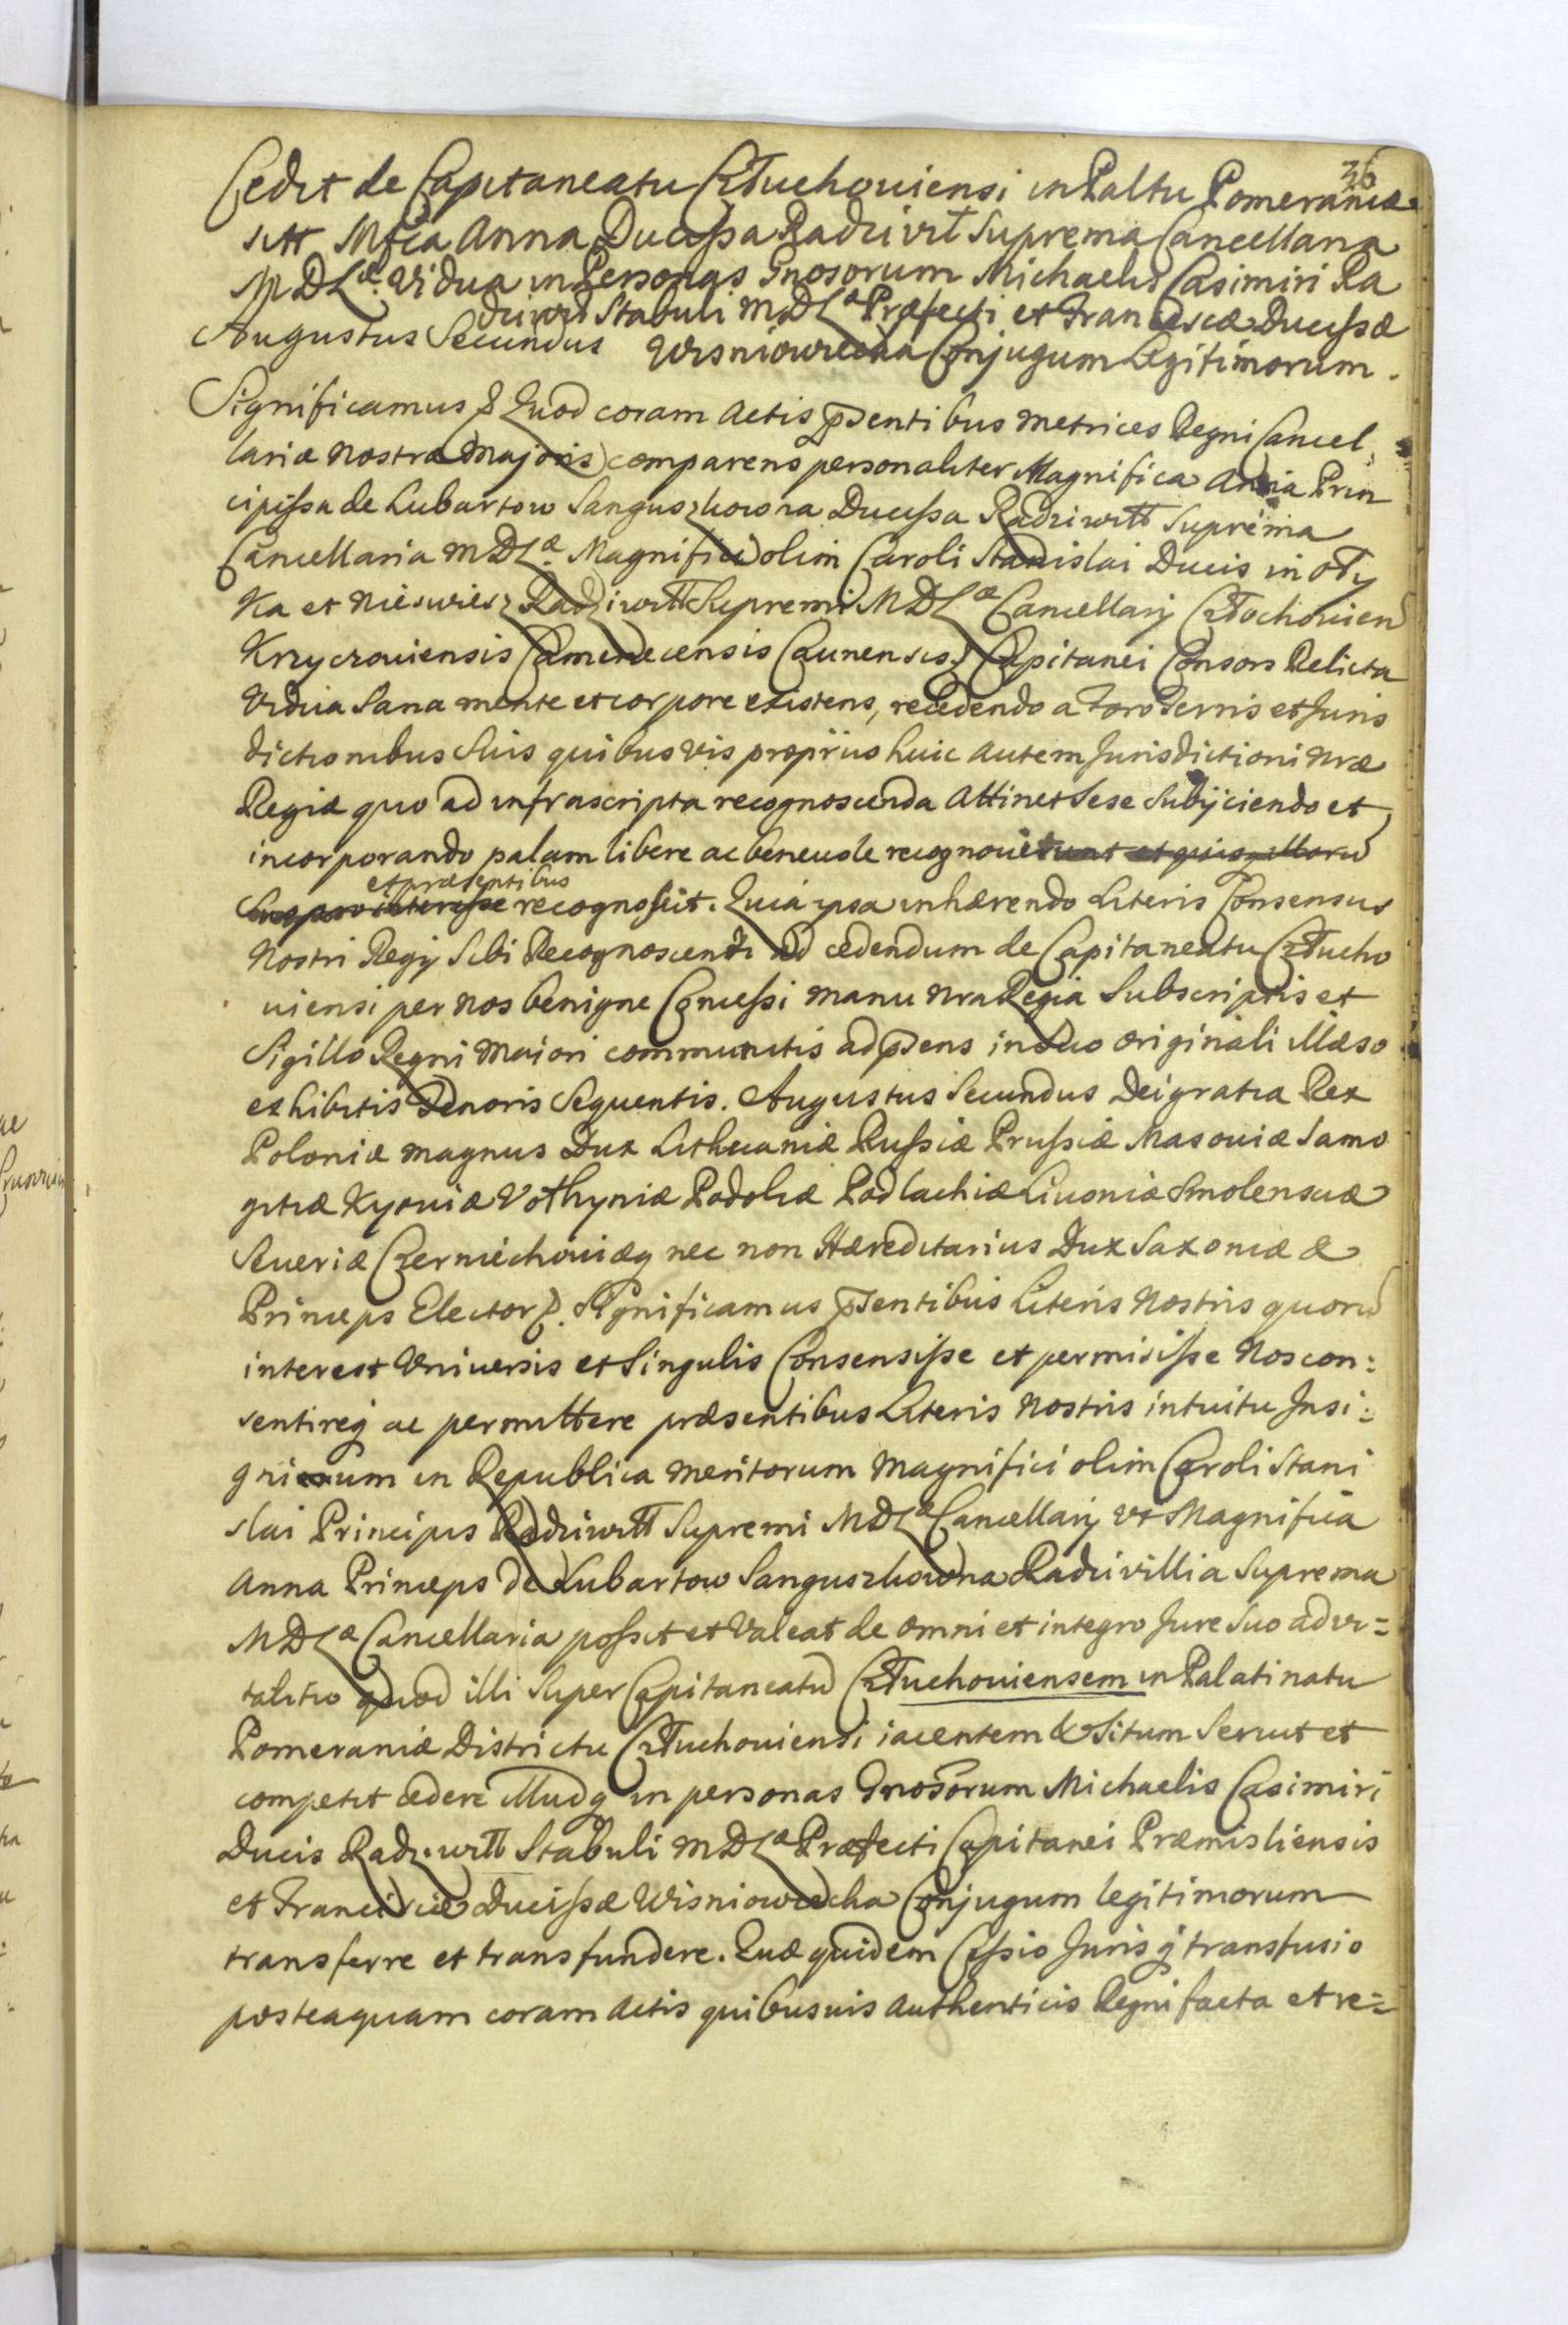 36
Cedit de Capitaneatu CzTuchoviensi in Paltu Pomeraniæ
Mfca Anna Ducissa Radziwił Suprema Cancellaria
MDLæ. Vidua in Personas Gnosorum Michaelis Casimiri Ra
dziwił Stabuli MDLæ Præfecti et Franciscæ Ducissæ
Augustus Secundus Wisniowiecka Conjugum Legitimorum.
Significamus & Quod coram Actis pntibus Metrices Regni Cancel
lariæ Nostræ Majoris comparens personaliter Magnifica Anna Prin
cipissa de Lubartow Sanguszkowna Ducissa Radziwiłł Suprema
Cancellaria MDLæ. Magnifici olim Caroli Stanislai Ducis in Oły
ka et Nieswiesz Radziwiłł Supremi MDLæ Cancellarij CzTochovien
Krzyczoviensis Camenecensis Caunensis & Capitanei Consors Relicta
Vidua Sana mente et corpore existens, recedendo a Foro Terris et Juris
dictionibus Suis quibusvis proprijs huic autem Jurisdictioni Nræ
Regiæ quo ad infrascripta recognoscenda Attinet Sese Subijciendo et
incorporando palam libere ac benevole recognovit
et præsentibus
recognoscit. Quia ipsa inhærendo Literis Consensus
Nostri Regij Sibi Recognoscenti ad cedendum de Capitaneatu CzTucho
viensi per Nos benigne Concessi Manu Nra Regia Subscriptis et
Sigillo Regni Maiori communitis ad præsens in Suo Originali illæso
exhibitis Tenoris Sequentis. Augustus Secundus Dei gratia Rex
Poloniæ Magnus Dux Lithuaniæ Russiæ Prussiæ Masoviæ Samo
gitiæ Kyoviæ Vołhyniæ Podoliæ Podlachiæ Livoniæ Smolensciæ
Severiæ Czerniechoviæq nec non Hæreditarius Dux Saxoniæ &
Princeps Elector &. Significamus præsentibus Literis Nostris quorū
interest Universis et Singulis Consensisse et permisisse Nos con:
sentireq ac permittere præsentibus Literis Nostris intuitu Insi:
gnium in Republica Meritorum Magnifici olim Caroli Stani
slai Principis Radziwiłł Supremi MDLæ Cancellarij ut Magnifica
Anna Princeps de Lubartow Sanguszkowna Radzivillia Suprema
MDLæ Cancellaria possit et Valeat de Omni et integro Jure Suo advi=
talitio quod illi Super Capitaneatū CzTuchoviensem in Palatinatu
Pomeraniæ Districtu CzTuchoviensi iacentem & Situm Servit et
competit cedere Illudq in personas Gnosorum Michaelis Casimiri
Ducis Radziwiłł Stabuli MDLæ Præfecti Capitanei Præmisliensis
et Franciscæ Ducissæ Wisniowiecka Conjugum legitimorum
transferre et transfundere. Quæ quidem Cessio Juris q transfusio
posteaquam coram Actis quibusvis Authenticis Regni facta et re=